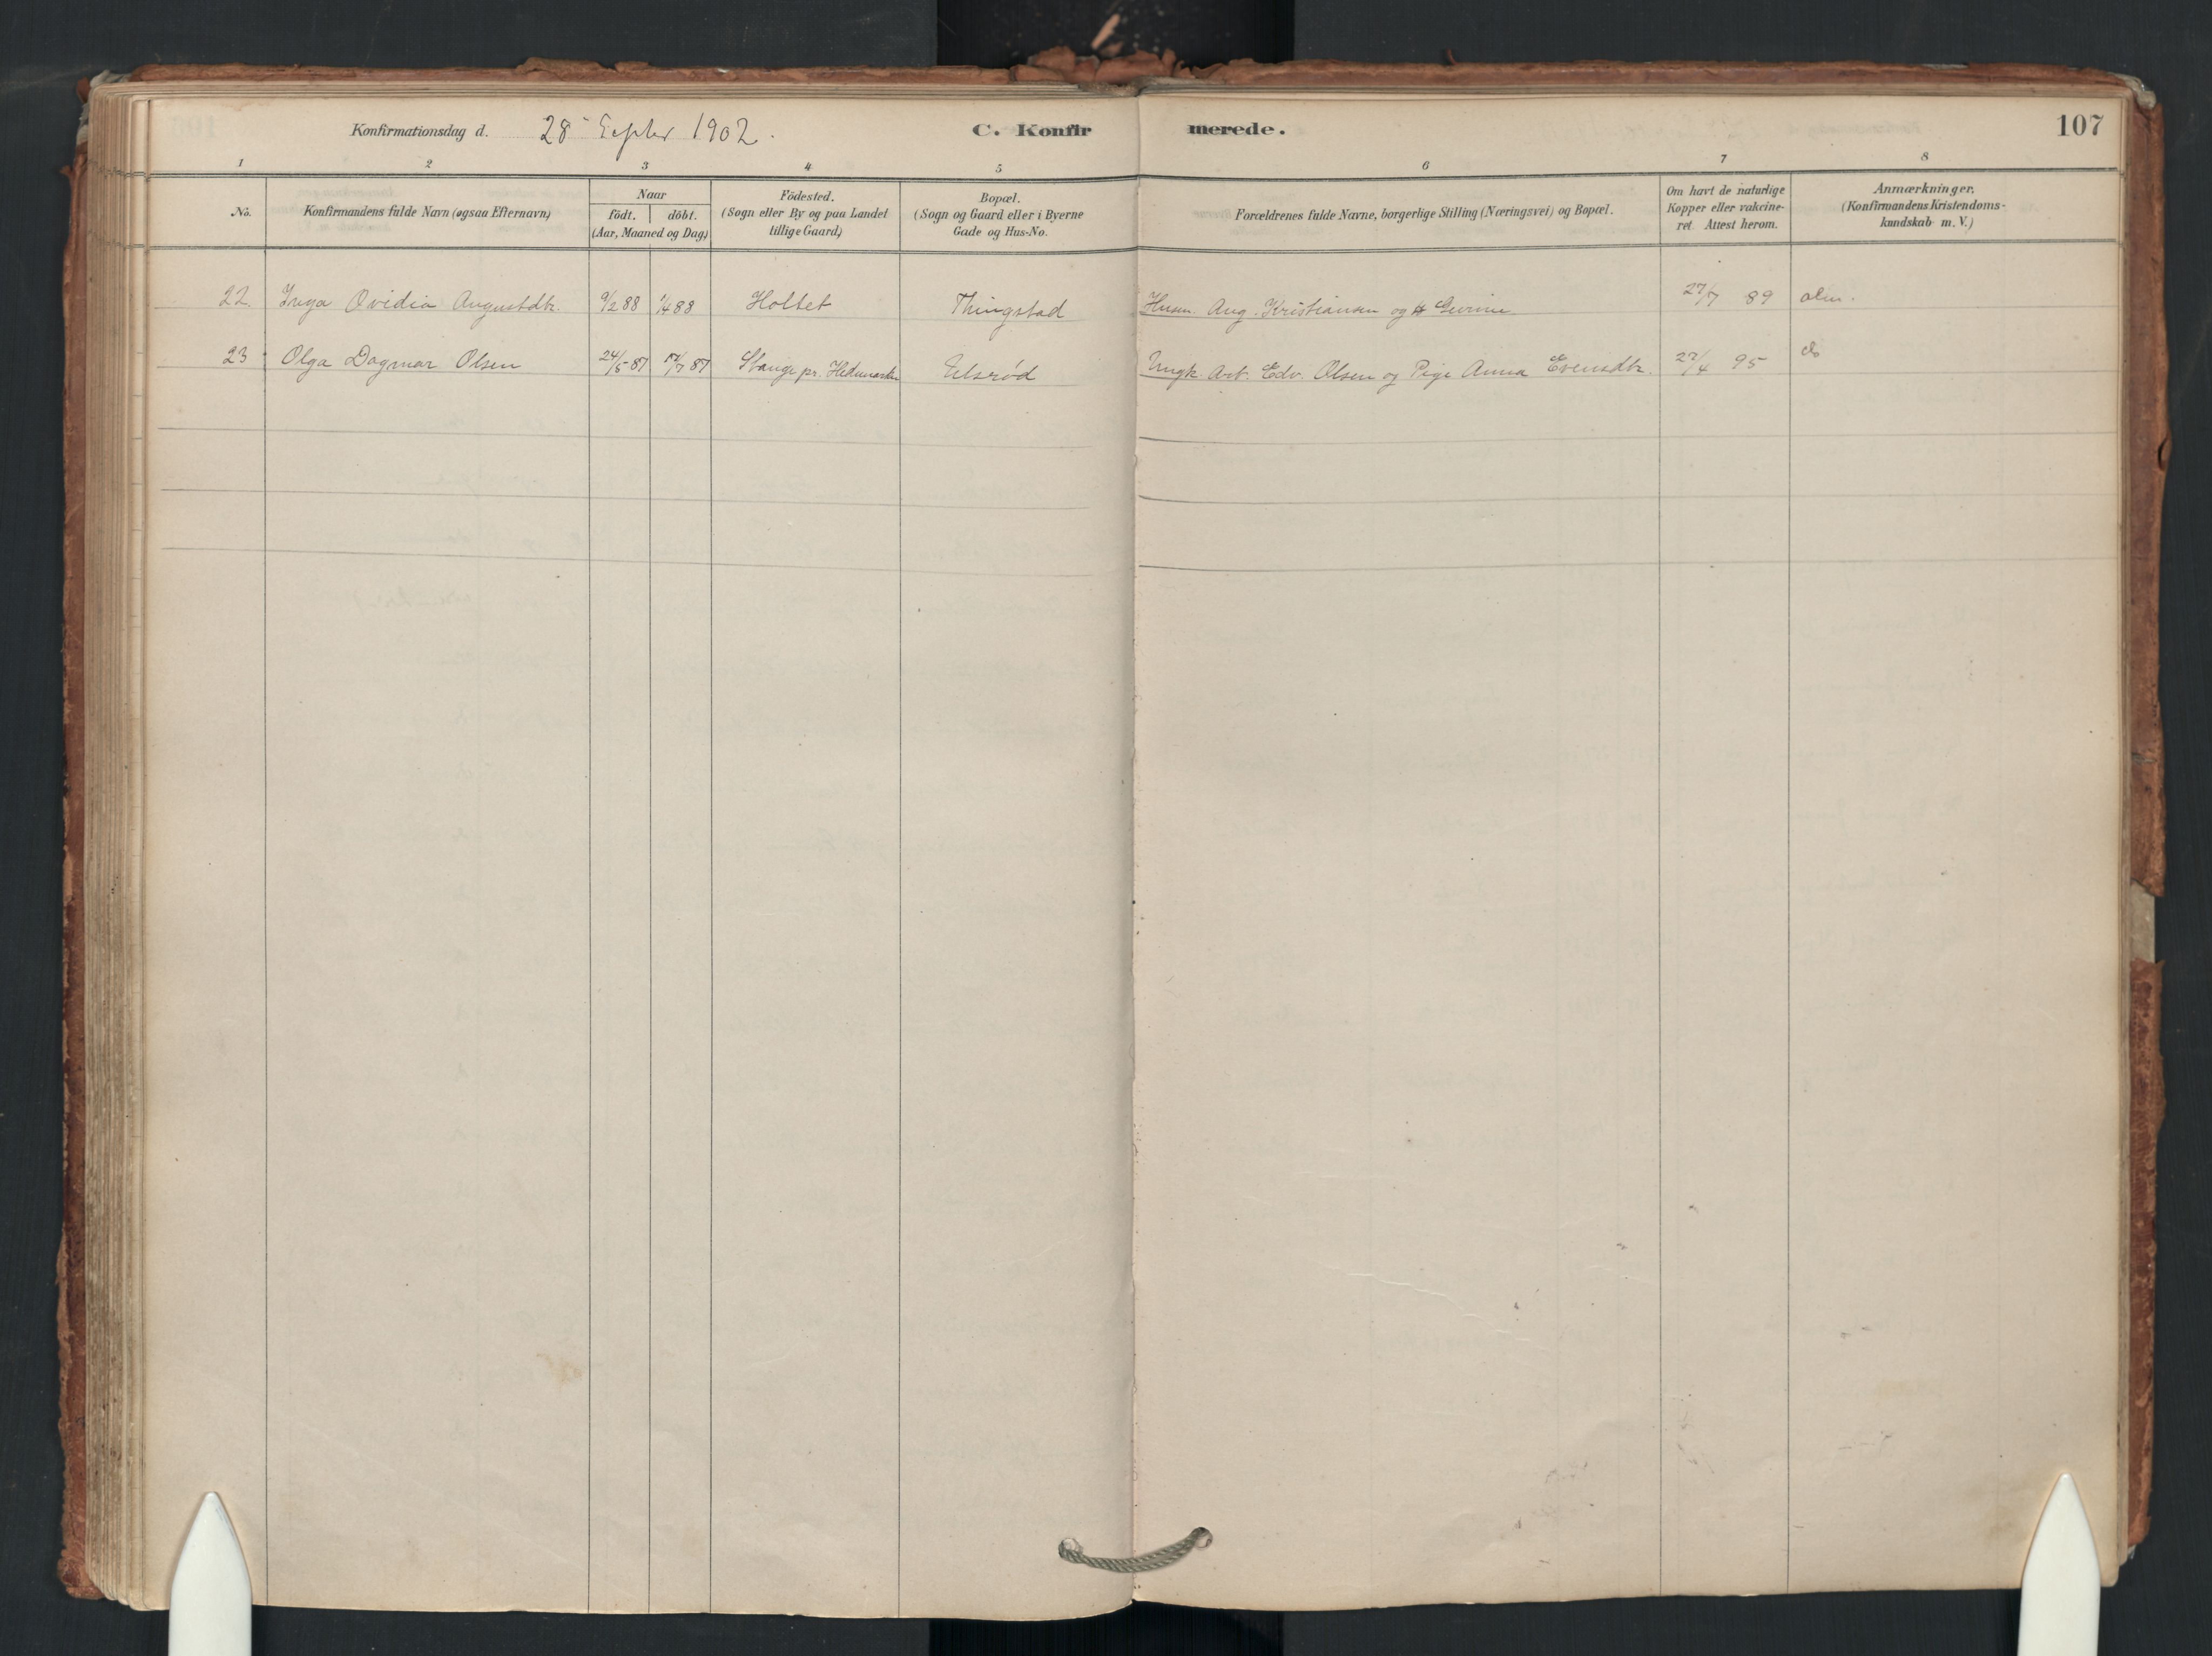 Konfirmationsdag d. 28 Septbr 1902. C. Konfirmerede. 107
1 2 3 4 5 6 7 8
No. Konfirmandens fulde Navn (ogsaa Efternavn) Naar födt. döbt. (Aar, Maaned og Dag) Födested. (Sogn eller By og paa Landet tillige Gaard) Bopæl. (Sogn og Gaard eller i Byerne Gade og Hus-No. Forældrenes fulde Navne, borgerlige Stilling (Næringsvei) og Bopæl. Om havt de naturlige Kopper eller vakcineret. Attest herom. Anmærkninger. (Konfirmandens Kristendomskundskab m. V.)
22. Inga Ovidia Augustdtr. 9/2 88 1/4 88 Holtet Thingstad Husm. Aug. Kristiansen og H Gurine 27/7 89 alm.
23 Olga Dagmar Olsen 24/5 87 17/7 87 Stange pr. Hedemarken Elsrød Ungk. Arb. Edv. Olsen og Pige Anna Evensdtr. 27/4 95 do